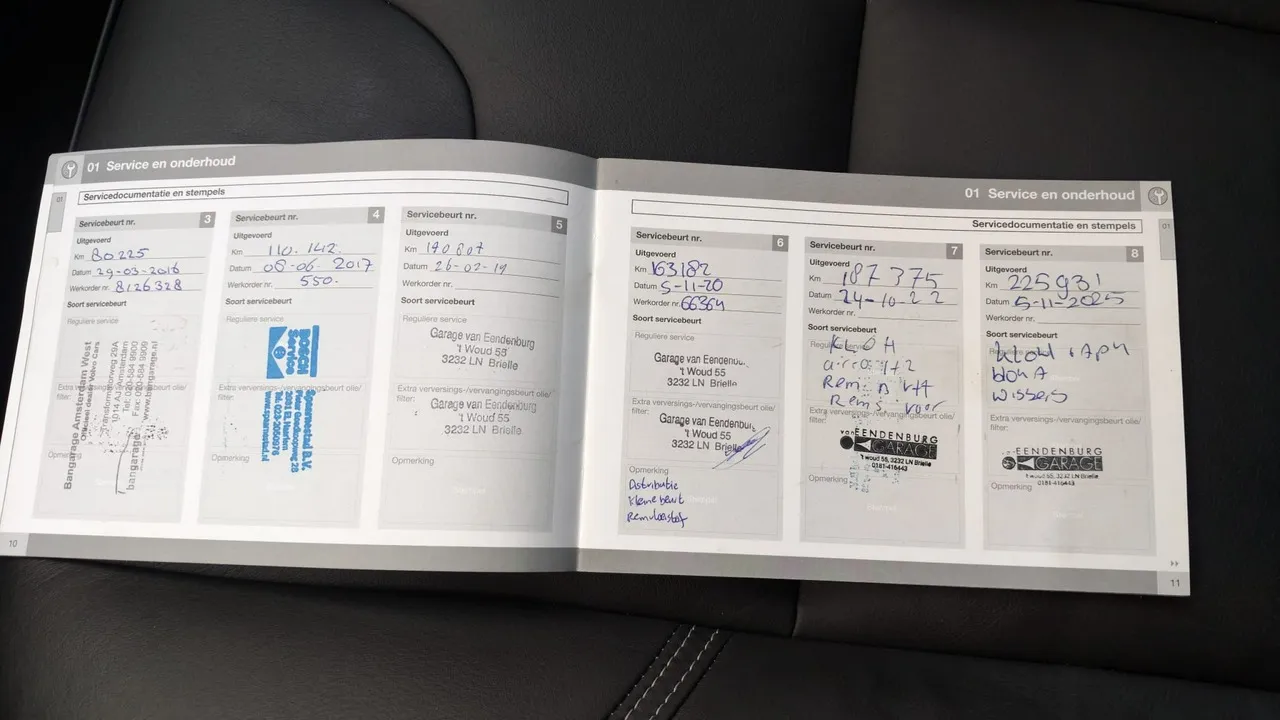 01 Service en onderhoud
01
Servicedocumentatie en stempels
Servicebeurt nr. 3
Uitgevoerd
Km 80225
Datum 29-03-2016
Werkorder nr. 8126328
Soort servicebeurt
Reguliere service
Extra verversings-/vervangingsbeurt olie/
filter:
Bangarage Amsterdam West
Officieel dealer Volvo Cars
Transformatorweg 29A
1014 AJ Amsterdam
Tel: 020-684 9600
Fax: 020-684 9609
www.bangarage.nl
bangarage
Servicebeurt nr. 4
Uitgevoerd
Km 110.142.
Datum 06-06-2017
Werkorder nr. 550.
Soort servicebeurt
Reguliere service
BOSCH
Service
Extra verversings-/vervangingsbeurt olie/
filter:
Spaarnestad B.V.
Tel. 023-2050876
www.spaarnestad.nl
Opmerking
Servicebeurt nr. 5
Uitgevoerd
Km 140807
Datum 26-02-19
Werkorder nr.
Soort servicebeurt
Reguliere service
Garage van Eendenburg
't Woud 55
3232 LN Brielle
Extra verversings-/vervangingsbeurt olie/
filter:
Garage van Eendenburg
't Woud 55
3232 LN Brielle
Opmerking
10
01 Service en onderhoud
01
Servicedocumentatie en stempels
Servicebeurt nr. 6
Uitgevoerd
Km 163182
Datum 5-11-20
Werkorder nr. 66364
Soort servicebeurt
Reguliere service
Garage van Eendenbu
't Woud 55
3232 LN Brielle
Extra verversings-/vervangingsbeurt olie/
filter:
Garage van Eendenburg
't Woud 55
3232 LN Brielle
Opmerking
Distributie
Kleine beurt
Remvloeistof
Servicebeurt nr. 7
Uitgevoerd
Km 187375
Datum 24-10-22
Werkorder nr.
Soort servicebeurt
airco 1+2
Rem
Rems voor
Extra verversings-/vervangingsbeurt olie/
filter:
van EENDENBURG
GARAGE
't woud 55, 3232 LN Brielle
0181-416443
Opmerking
Servicebeurt nr. 8
Uitgevoerd
Km 225931
Datum 5-11-2025
Werkorder nr.
Soort servicebeurt
wissers
Extra verversings-/vervangingsbeurt olie/
filter:
EENDENBURG
GARAGE
't woud 55, 3232 LN Brielle
0181-416443
Opmerking
11